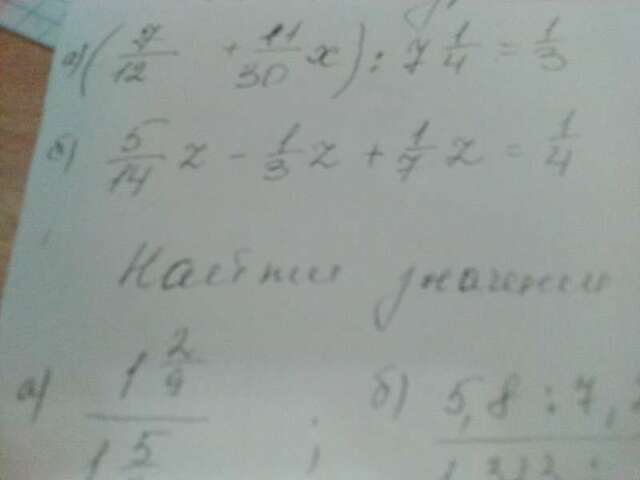 а) (7/12 + 11/30 x) : 7 1/4 = 1/3
б) 5/14 z - 1/3 z + 1/7 z = 1/4
Найти значения
а) 1 2/9 ; б) 5,8 : 7,
1 5